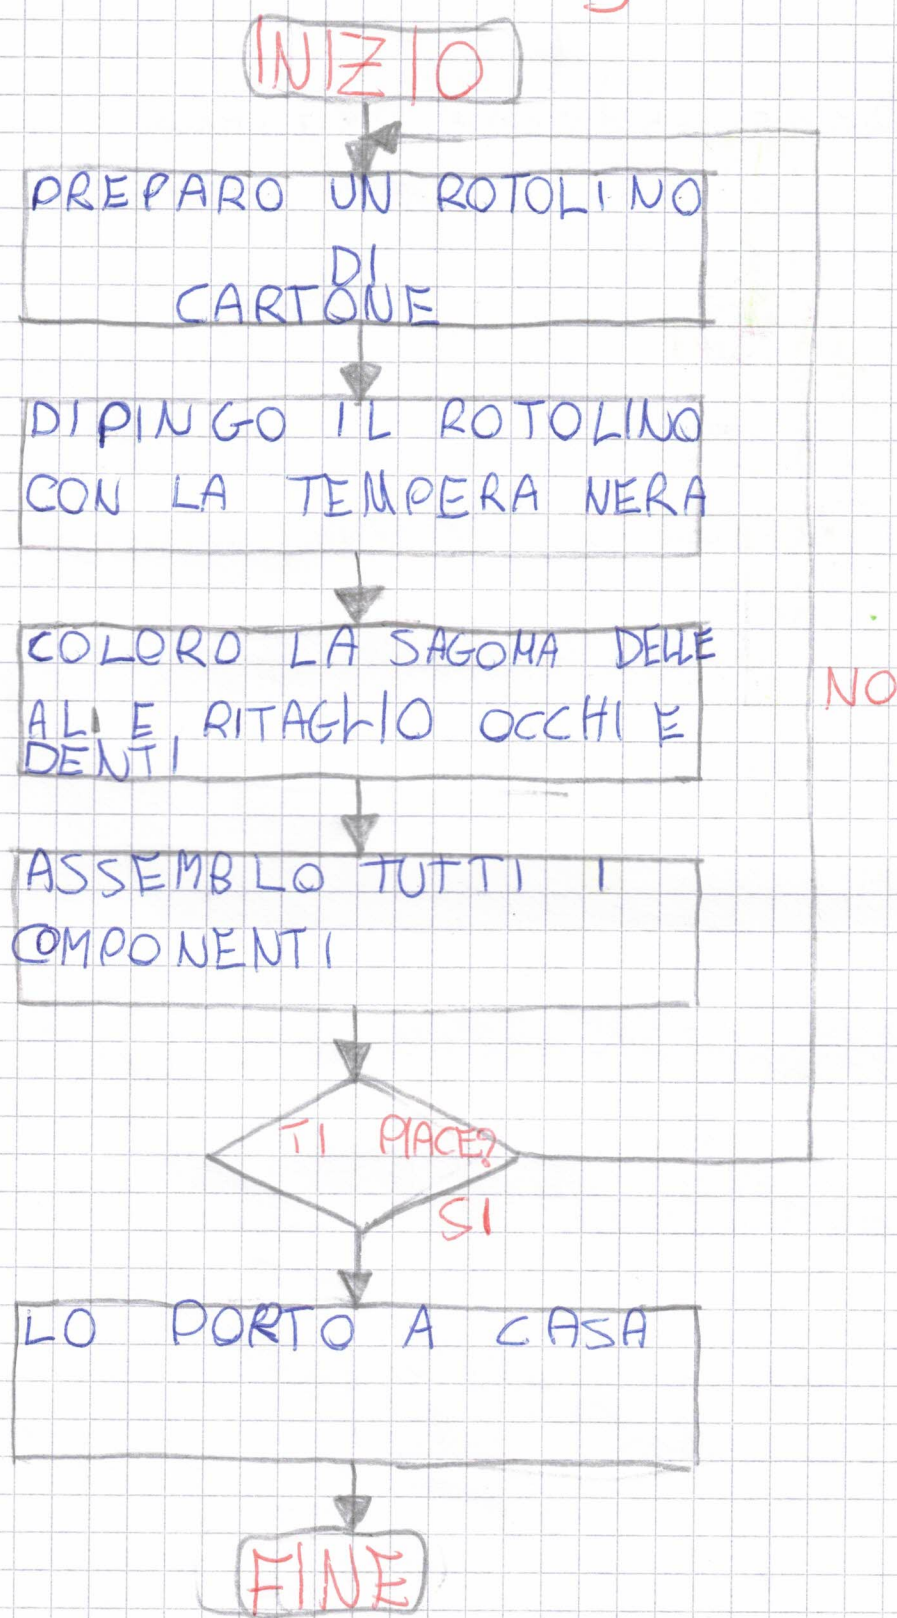 INIZIO
PREPARO UN ROTOLINO
DI
CARTONE
DIPINGO IL ROTOLINO
CON LA TEMPERA NERA
COLORO LA SAGOMA DELLE
ALI E RITAGLIO OCCHI E
DENTI
ASSEMBLO TUTTI I
COMPONENTI
NO
TI PIACE?
SI
LO PORTO A CASA
FINE